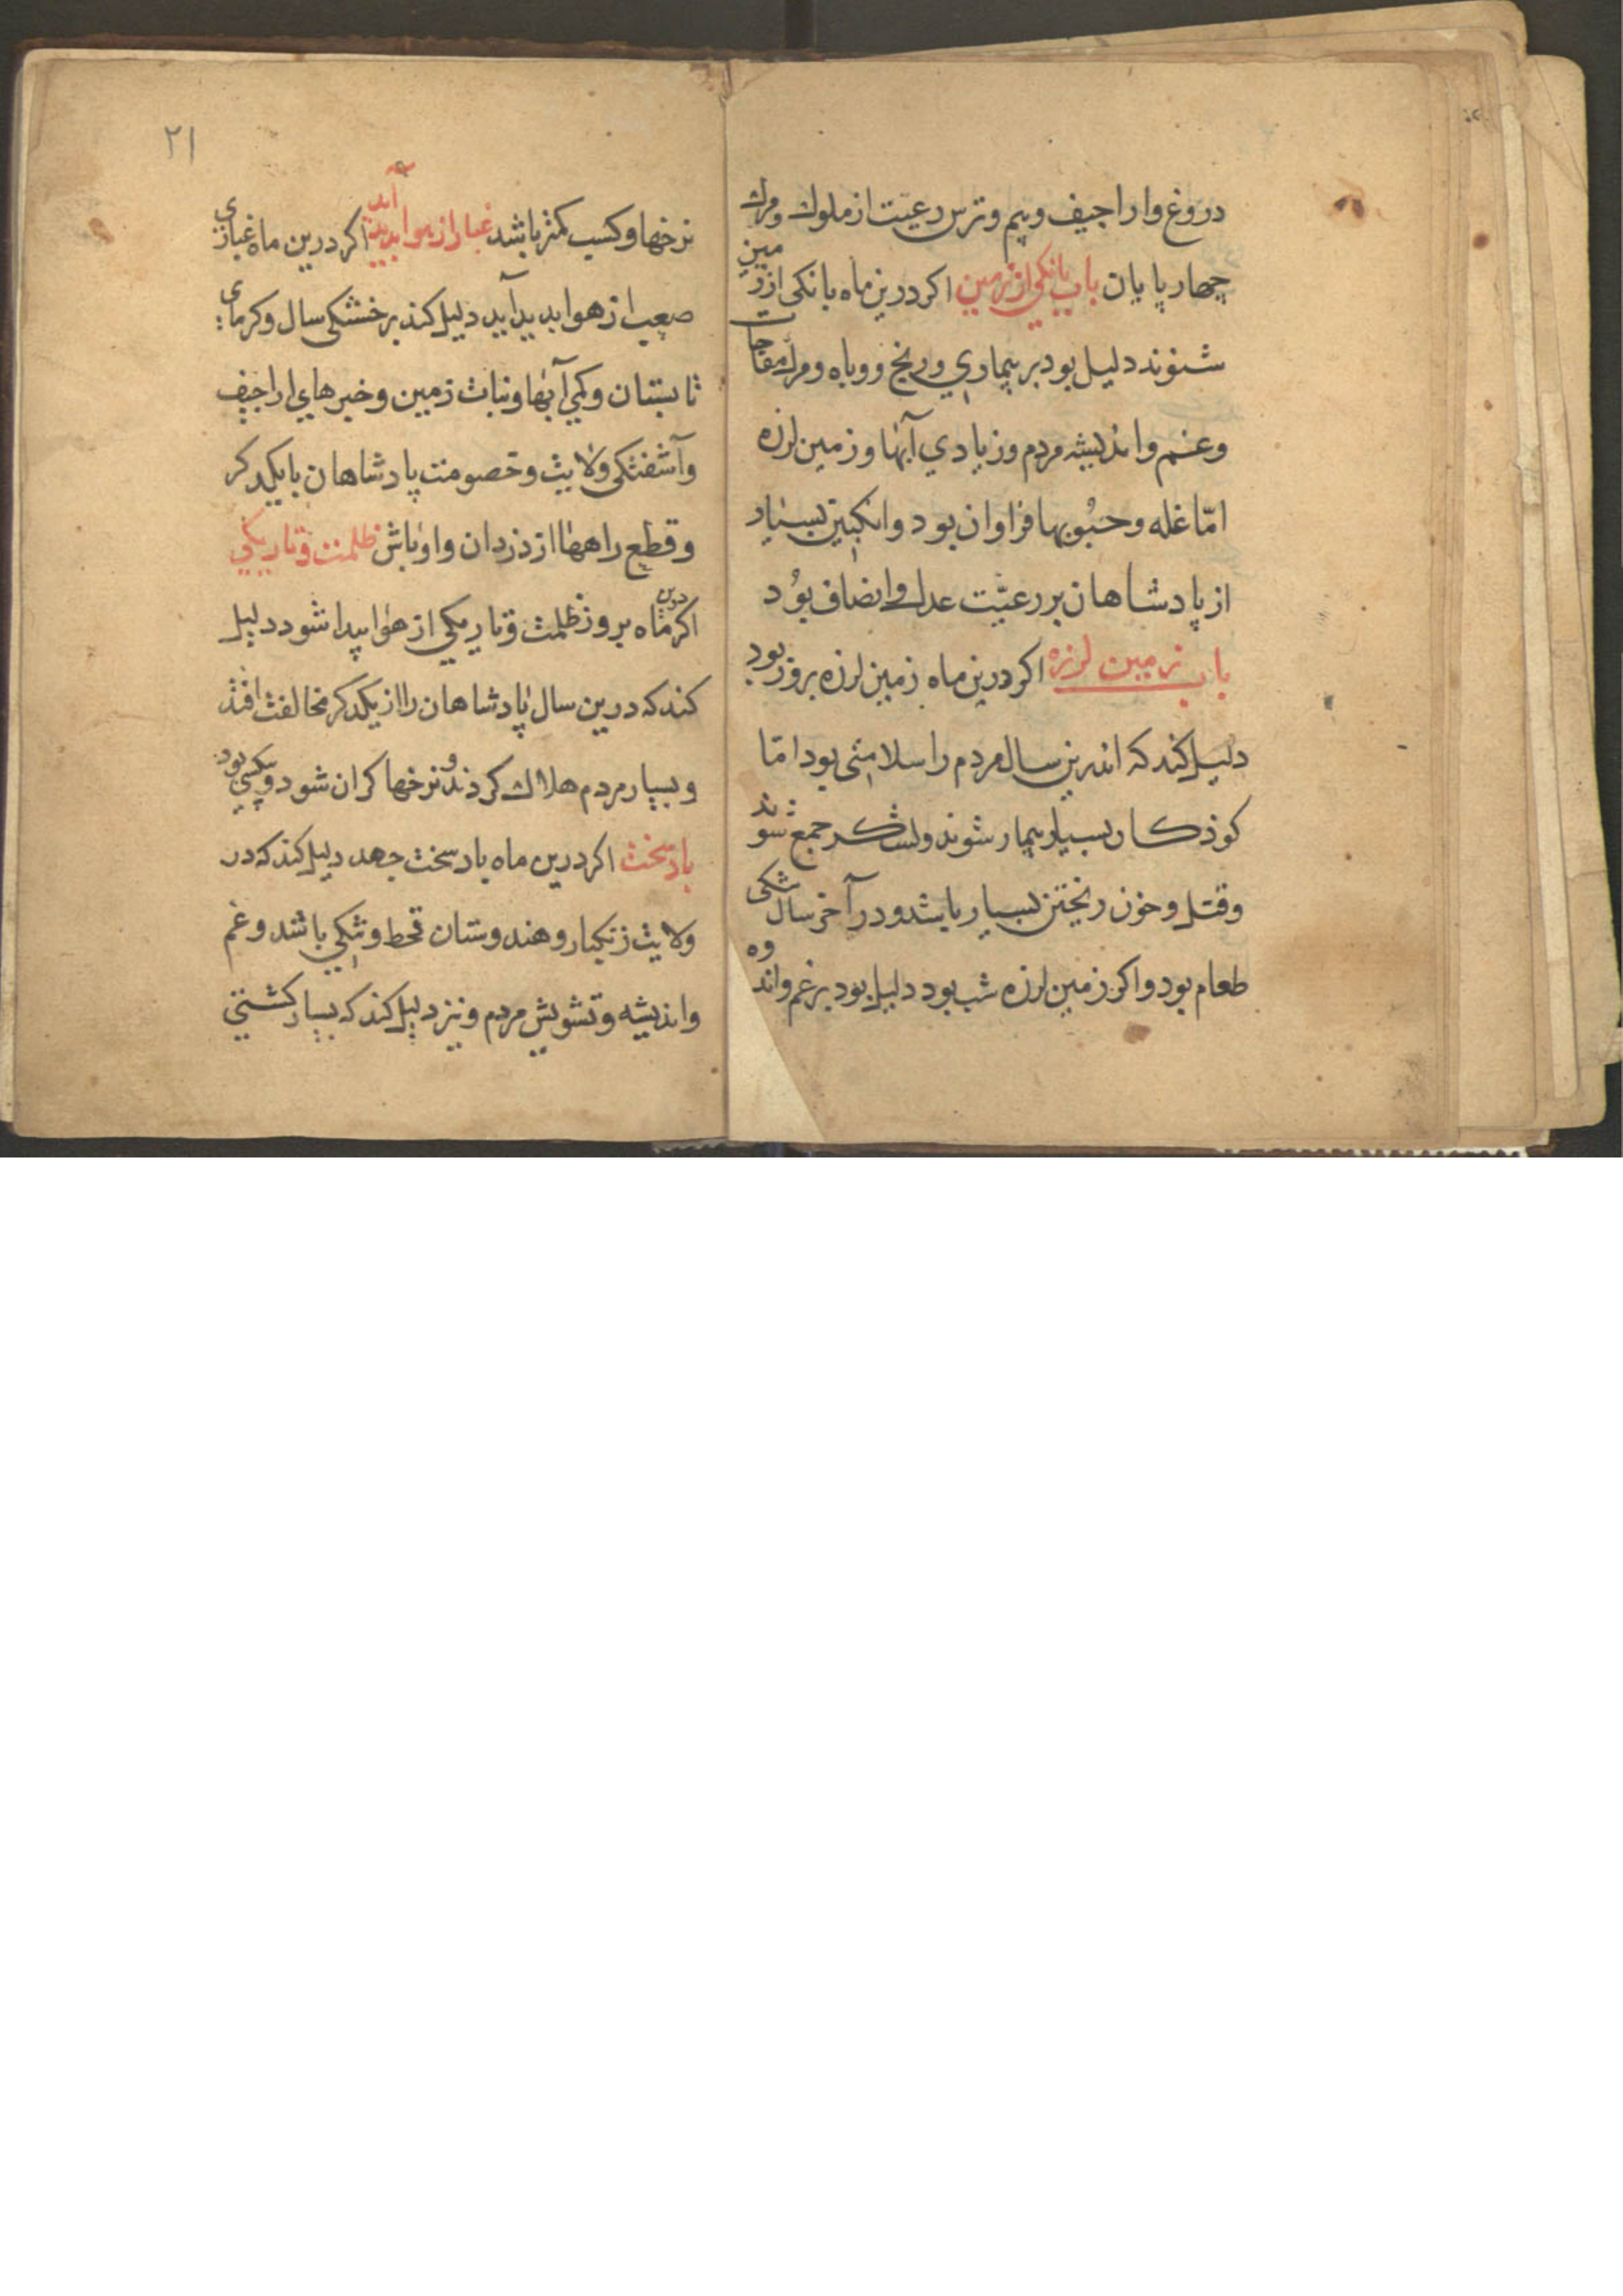 دروغ و اراجیف و بیم و ترس رعیّت از ملوك و مرك
چهار پایان باب بانکی از زمین اکر درین ماه بانکی از زمین
شنوند دلیل بود بر بیماری و رنج و وباه و مرك مفاجات
و غم و اندیشه مردم و زیادی آبها و زمین لرزه
امّا غله و حبُوبها فراوان بود و انکبین بسیار
از پادشاهان بر رعیّت عدل و انصاف بوُد
باب زمین لرزه اکر درین ماه زمین لرزه بروز بود
دلیل کند که اندرین سال مردم را سلامتی بود امّا
کوذکان بسیار بیمار شوند و لشکر جمع شوند
و قتل و خون ریختن بسیار باشد و در آخر سال تنکی
طعام بود و اکر زمین لرزه شب بود دلیل بود بر غم و اندوه
۲۱
نرخها و کسب کمتر باشد غبار از هوا پدید آید اکر درین ماه غباری
صعب از هوا پدید آید دلیل کند بر خشکی سال و کرمای
تابستان و کمی آبها و نبات زمین و خبرهای اراجیف
و آشفتکی ولایت و خصومت پادشاهان با یکدکر
و قطع راهها از دزدان و اوباش ظلمت و تاریکی
اکر درین ماه بروز ظلمت و تاریکی از هوا پیدا شود دلیل
کند که درین سال پادشاهان را از یکدکر مخالفت افتذ
و بسیار مردم هلاك کردند و نرخها کران شود و تنکی بود
باد سخت اکر درین ماه باد سخت جهد دلیل کند که در
ولایت زنکبار و هندوستان قحط و تنکی باشد و غم
و اندیشه و تشویش مردم و نیز دلیل کند که بسیار کشتی